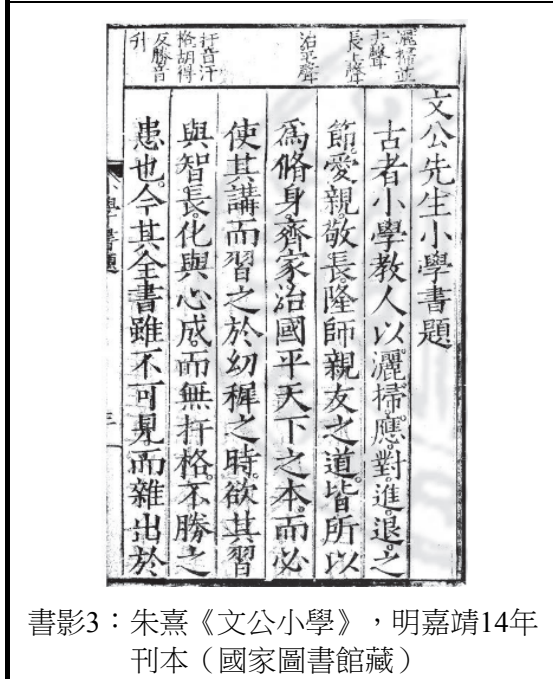 灑掃並
去聲
長上聲
治平聲
扞音汗
格胡得
反勝音
升
文公先生小學書題
古者小學教人以灑掃應對進退之
節愛親敬長隆師親友之道皆所以
爲脩身齊家治國平天下之本而必
使其講而習之於幼穉之時欲其習
與智長化與心成而無扞格不勝之
患也今其全書雖不可見而雜出於
小學書題
書影3:朱熹《文公小學》,明嘉靖14年
刊本(國家圖書館藏)